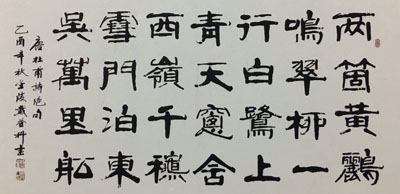 两箇黄鸝
鳴翠柳一
行白鷺上
青天窻含
西嶺千穐
雪門泊東
吳萬里舩
唐杜甫詩絕句
乙酉年秋金陵戴書